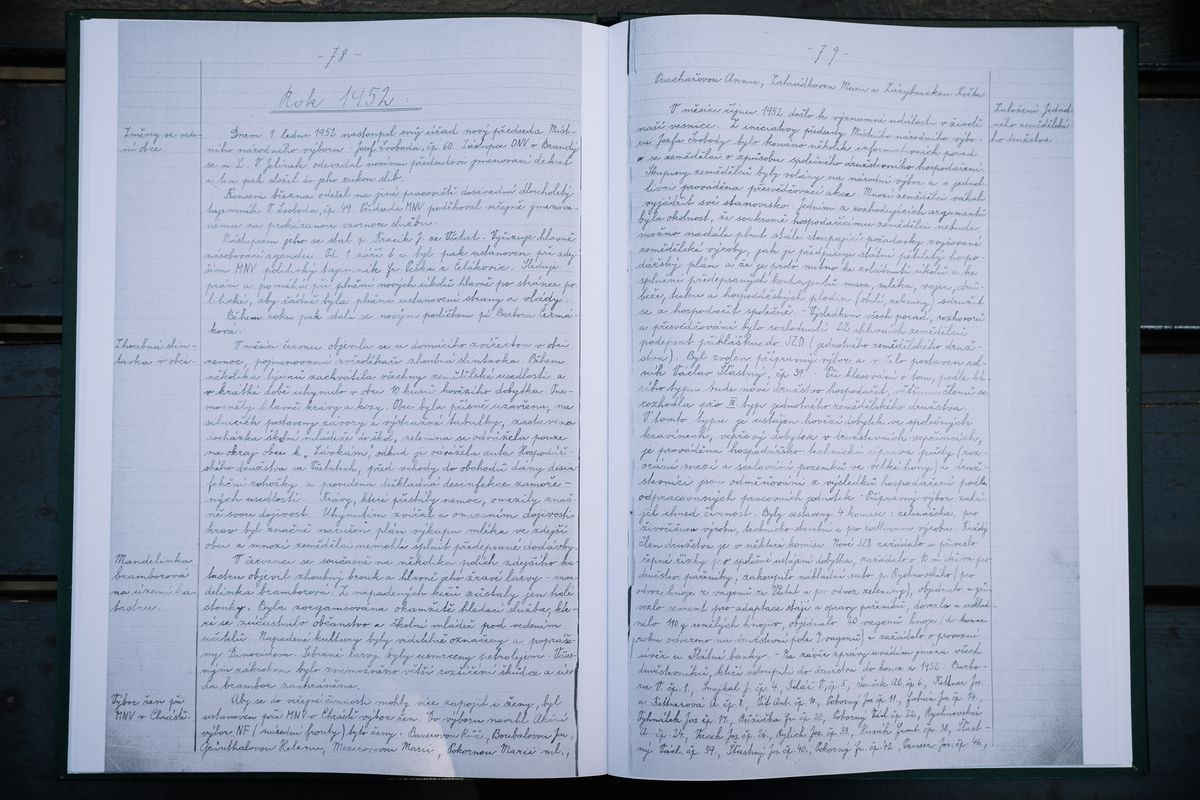 - 78 -
Rok 1952.
Změny ve vede-
ní obce
Dnem 1. ledna 1952 nastoupil svůj úřad nový předseda Míst-
ního národního výboru - Josef Svoboda, čp. 60. Zástupce ONV v Brandý-
se n. L. V. Jelínek odevzdal novému předsedovi jmenovací dekret
a ten pak složil do jeho rukou slib.
Koncem března odešel na jiné pracoviště dosavadní dlouholetý
tajemník V. Svoboda, čp. 49. Předseda MNV poděkoval veřejně jmenova-
nému za prokázanou vzornou službu.
Nástupcem jeho se stal p. J. ze Všetat. Vyřizuje hlavně
zásobovací agendu. Od 1. září t. r. byl pak ustanoven při zdej-
ším MNV politický tajemník Jr. Peška z Čelákovic. Sleduje
práci a pomáhá při plnění nových úkolů hlavně po stránce po-
litické, aby řádně byla plněna ustanovení strany a vlády.
Během roku pak stala se novým poslíčkem pí Barbora Čermá-
ková.
Zhoubná slin-
tavka v obci.
V měsíci červnu objevila se u domácího zvířectva v obci
nemoc, pojmenovaná zvěrolékaři zhoubná slintavka. Během
několika týdnů zachvátila všechny zemědělské usedlosti a
v krátké době uhynulo v obci 10 kusů hovězího dobytka. One-
mocněly hlavně krávy a kozy. Obec byla přísně uzavřena, na
silnicích postaveny závory a výstražné tabulky, zastavena
docházka školní mládeže do škol, zelenina se odvážela pouze
na okraj obce k „Lávkám“, odkud ji odvážela auta Hospodář-
ského družstva ve Všetatech, před vchody do obchodů dány desin-
fekční rohožky a provedena důkladná desinfekce zamoře-
ných usedlostí. Krávy, které přestály nemoc, omezily znač-
ně svou dojivost. Uhynutím zvířat a omezením dojivosti
krav byl značně narušen plán výkupu mléka ve zdejší
obci a mnozí zemědělci nemohli splnit předepsané dodávky.
Mandelinka
bramborová
na území ka-
tastru.
V červenci se současně na několika polích zdejšího ka-
tastru objevil zhoubný brouk a hlavně jeho žravé larvy - man-
delinka bramborová. Z napadených keřů zůstaly jen holé
stonky. Byla zorganisována okamžitě hledací služba, kte-
ré se zúčastnilo občanstvo a školní mládež pod vedením
učitelů. Napadené kultury byly viditelně označeny a poprášе-
ny Dinocidem. Sebrané larvy byly usmrceny petrolejem. Včas-
ným zákrokem bylo znemožněno větší rozšíření škůdce a úro-
da brambor zachráněna.
Výbor žen při
MNV v Chrástě.
Aby se do veřejné činnosti mohly více zapojit i ženy, byl
ustanoven při MNV v Chrástě výbor žen. Do výboru navrhl Akční
výbor NF (národní fronty) tyto ženy: Bauerovou Růž., Boubalovou Jar.,
Grünthalovou Helenu, Mezerovou Marii, Pokornou Marii ml.,
- 79 -
Annu, Zahrádkovou Marii a Květu.
Založení Jednot-
ného zemědělské-
ho družstva.
V měsíci říjnu 1952 došlo k významné události v životě
naší vesnice. Z iniciativy předsedy Místního národního výbo-
ru Josefa Svobody bylo konáno několik informativních porad
se zemědělci o způsobu společného družstevního hospodaření.
Skupiny zemědělců byly volány na národní výbor a s jednot-
livci prováděna přesvědčovací akce. Mnozí zemědělci váhali
vyjádřit své stanovisko. Jedním z rozhodujících argumentů
byla okolnost, že soukromě hospodařícímu zemědělci nebude
možno nadále plnit stále stoupající požadavky zvyšované
zemědělské výroby, jak je předpisuje státní pětiletý hospo-
dářský plán a že je proto nutno ke zvládnutí úkolů a ke
splnění předepsaných kontingentů masa, mléka, vajec, drů-
beže, tuků a hospodářských plodin (obilí, zeleniny) sdružit
se a hospodařit společně. - Výsledkem všech porad, rozhovorů
a přesvědčování bylo rozhodnutí 22 aktivních zemědělců
podepsat přihlášku do JZD (jednotného zemědělského druž-
stva). Byl zvolen přípravný výbor a v čelo postaven rol-
ník Václav Šťastný, čp. 39. Při hlasování o tom, podle kte-
rého typu bude nové družstvo hospodařit, většina členů se
rozhodla pro III. typ jednotného zemědělského družstva.
V tomto typu je ustájen hovězí dobytek ve společných
kravínech, vepřový dobytek v družstevních vepřínech,
je prováděna hospodářsko-technická úprava půdy (roz-
orání mezí a scelování pozemků ve velké hony) a druž-
stevníci jsou odměňováni z výsledků hospodaření podle
odpracovaných pracovních jednotek. Přípravný výbor zahá-
jil ihned činnost. Byly sestaveny 4 komise: zelinářská, pro
živočišnou výrobu, technicko stavební a pro rostlinnou výrobu. Každý
člen družstva je v některé komisi. Nové JZD zažádalo o
řepné řízky pro společné ustájení dobytka, zažádalo o 10 t dřeva pro
družstev. pařeniště, zakoupilo nákladní auto p. Rychnovského (pro
odvoz hnoje z vagonů ze Všetat a pro odvoz zeleniny), objednalo a při-
vezlo cement pro adaptace stájí a opravy pařenišť, dovezlo a usklad-
nilo 110 q umělých hnojiv, objednalo 40 vagonů hnoje (do konce
roku odvezeno na družstevní pole 7 vagonů) a zažádalo o provozní
úvěr u Státní banky. - Na závěr zprávy uvádím jména všech
družstevníků, kteří vstoupili do družstva do konce r. 1952: Barbo-
ra V. čp. 1, Smejkal J. čp. 4, Kolář V. čp. 5, Al. čp. 6, Fettner Jos.
a Fettnerová A. čp. 8, Vít Ant. čp. 10, Pokorný Jos. čp. 11, Jos. čp. 14,
Vyhnálek Jos. čp. 17, Růžička Fr. čp. 20, Pokorný Václ. čp. 22, Rychnovský
A. čp. 24, Jos. čp. 26, Jos. čp. 33, Husák čp. 38, Šťast-
ný Václ. čp. 39, Šťastný Jos. čp. 40, Pokorný Fr. čp. 42, Jos. čp. 46,